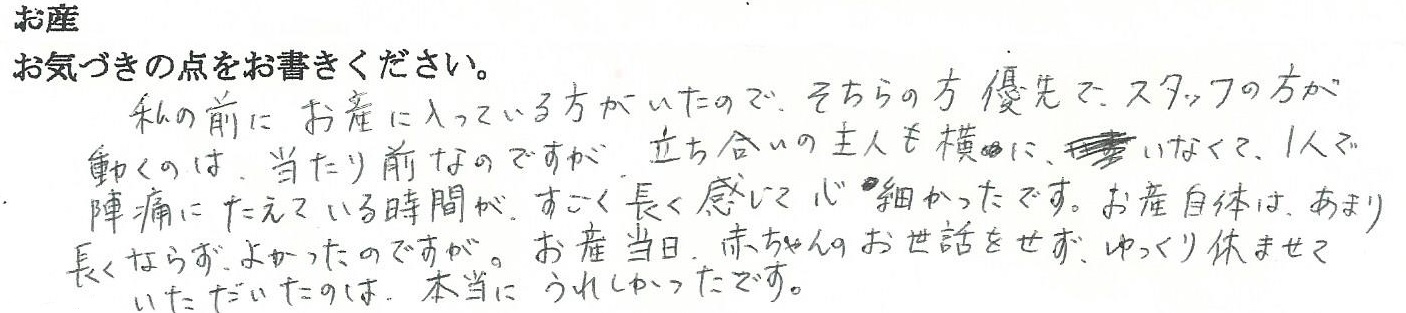 お産
お気づきの点をお書きください。
私の前に お産に入っている方がいたので、そちらの方 優先で、スタッフの方が
動くのは、当たり前なのですが、立ち合いの主人も横に、いなくて、1人で
陣痛に たえている時間が、すごく長く感じて心細かったです。お産自体は、あまり
長くならず、よかったのですが。お産当日、赤ちゃんのお世話をせず、ゆっくり休ませて
いただいたのは、本当に うれしかったです。